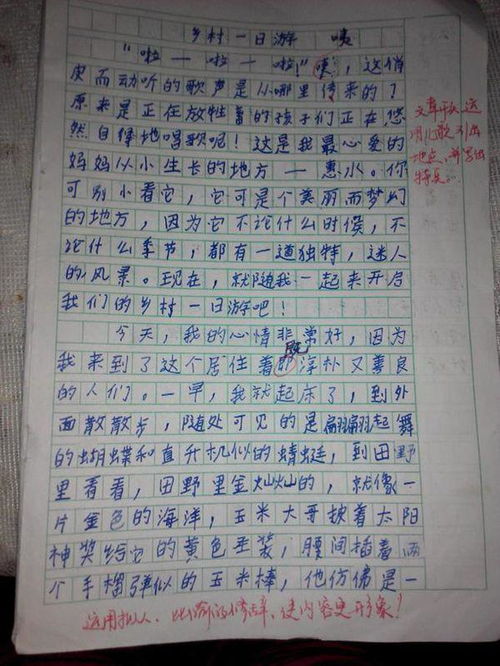 乡村一日游 咦
"啦—啦—啦!"咦,这俏
皮而动听的歌声是从哪里传来的?
原来是正在放牲畜的孩子们正在悠
然自得地唱歌呢!这是我最心爱的
妈妈从小生长的地方—惠水。你
可别小看它,它可是个美丽而梦幻
的地方,因为它不论什么时候,不
论什么季节,都有一道独特,迷人
的风景。现在,就随我一起来开启
我们的乡村一日游吧!
今天,我的心情非常好,因为
我来到了这个居住着既淳朴又善良
的人们。一早,我就起床了,到外
面散散步,随处可见的是翩翩起舞
的蝴蝶和直升机似的蜻蜓,到田野
里看看,田野里金灿灿的,就像一
片金色的海洋,玉米大哥披着太阳
神奖给它的黄色圣装,腰间插着两
个手榴弹似的玉米棒,他仿佛是一
文章开头运
用儿歌引出
地点,并写出
特点。
运用拟人、比喻的修辞,使内容更形象!